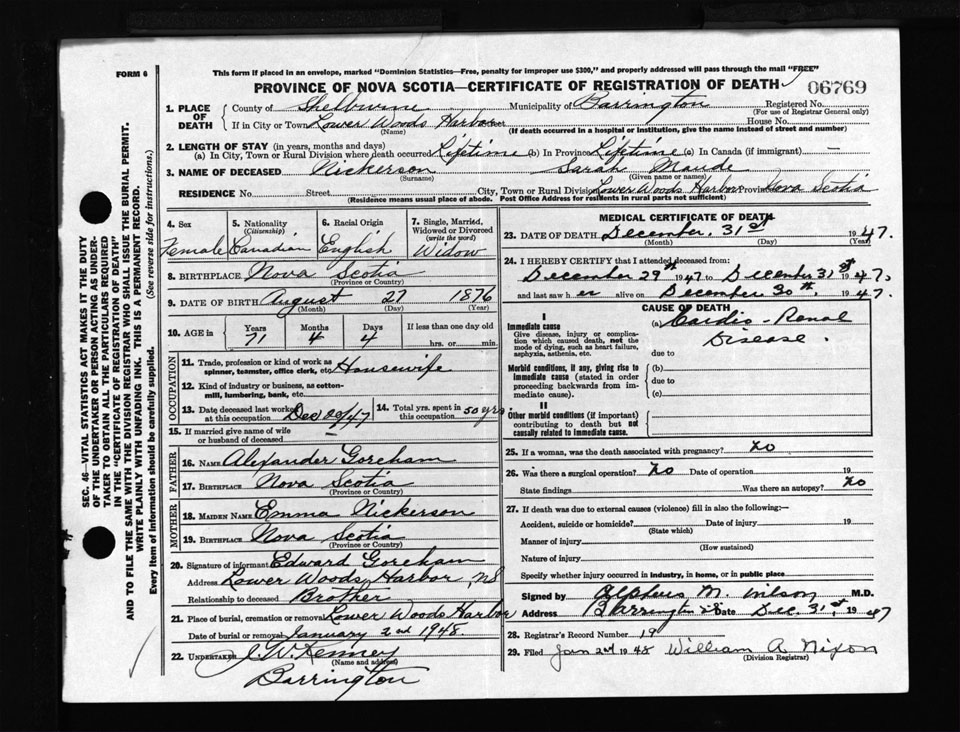 FORM 6
This form if placed in an envelope, marked "Dominion Statistics—Free, penalty for improper use $300," and properly addressed will pass through the mail "FREE"
PROVINCE OF NOVA SCOTIA—CERTIFICATE OF REGISTRATION OF DEATH
06769
1. PLACE OF DEATH
County of Shelburne Municipality of Barrington Registered No.
(For use of Registrar General only)
If in City or Town Lower Woods Harbor Street House No.
(Name) (If death occurred in a hospital or institution, give the name instead of street and number)
2. LENGTH OF STAY (in years, months and days)
(a) In City, Town or Rural Division where death occurred Lifetime (b) In Province Lifetime (c) In Canada (if immigrant) —
3. NAME OF DECEASED Nickerson Sarah Maude
(Surname) (Given name or names)
RESIDENCE No. Street City, Town or Rural Division Lower Woods Harbor Province Nova Scotia
(Residence means usual place of abode. Post Office Address for residents in rural parts not sufficient)
4. Sex
Female
5. Nationality
(Citizenship)
Canadian
6. Racial Origin
English
7. Single, Married, Widowed or Divorced
(write the word)
Widow
8. BIRTHPLACE Nova Scotia
(Province or Country)
9. DATE OF BIRTH August 27 1876
(Month) (Day) (Year)
10. AGE in Years Months Days If less than one day old
71 4 4 hrs. or min.
OCCUPATION
11. Trade, profession or kind of work as spinner, teamster, office clerk, etc. Housewife
12. Kind of industry or business, as cotton-mill, lumbering, bank, etc.
13. Date deceased last worked at this occupation Dec 29/47
14. Total yrs. spent in this occupation 50 yrs
15. If married give name of wife or husband of deceased —
FATHER
16. NAME Alexander Goreham
17. BIRTHPLACE Nova Scotia
(Province or Country)
MOTHER
18. MAIDEN NAME Emma Nickerson
19. BIRTHPLACE Nova Scotia
(Province or Country)
20. Signature of informant Edward Goreham
Address Lower Woods Harbor, NS
Relationship to deceased Brother
21. Place of burial, cremation or removal Lower Woods Harbor
Date of burial or removal January 2nd 1948.
22. UNDERTAKER J. W. Kenney
(Name and address)
Barrington
MEDICAL CERTIFICATE OF DEATH
23. DATE OF DEATH December 31st 1947.
(Month) (Day) (Year)
24. I HEREBY CERTIFY that I attended deceased from:
December 29th 1947 to December 31st 1947,
and last saw her alive on December 30th, 1947.
CAUSE OF DEATH
I
Immediate cause
Give disease, injury or complication which caused death, not the mode of dying, such as heart failure, asphyxia, asthenia, etc.
(a) Cardio-Renal
Disease.
due to
Morbid conditions, if any, giving rise to immediate cause (stated in order proceeding backwards from immediate cause).
(b)
due to
(c)
II
Other morbid conditions (if important) contributing to death but not causally related to immediate cause.
25. If a woman, was the death associated with pregnancy? No
26. Was there a surgical operation? No Date of operation 19
State findings Was there an autopsy? No
27. If death was due to external causes (violence) fill in also the following:—
Accident, suicide or homicide? Date of injury 19
(State which)
Manner of injury
(How sustained)
Nature of injury
Specify whether injury occurred in industry, in home, or in public place
Signed by Alpheus M. Wilson M.D.
Address Barrington Date Dec. 31st, 1947
28. Registrar's Record Number 19
29. Filed Jan 2nd 1948 William A. Nixon
(Division Registrar)
SEC. 46—VITAL STATISTICS ACT MAKES IT THE DUTY OF THE UNDERTAKER OR PERSON ACTING AS UNDERTAKER TO OBTAIN ALL THE PARTICULARS REQUIRED IN THE "CERTIFICATE OF REGISTRATION OF DEATH" AND TO FILE THE SAME WITH THE DIVISION REGISTRAR WHO SHALL ISSUE THE BURIAL PERMIT.
WRITE PLAINLY WITH UNFADING INK. THIS IS A PERMANENT RECORD.
Every item of information should be carefully supplied. (See reverse side for instructions.)